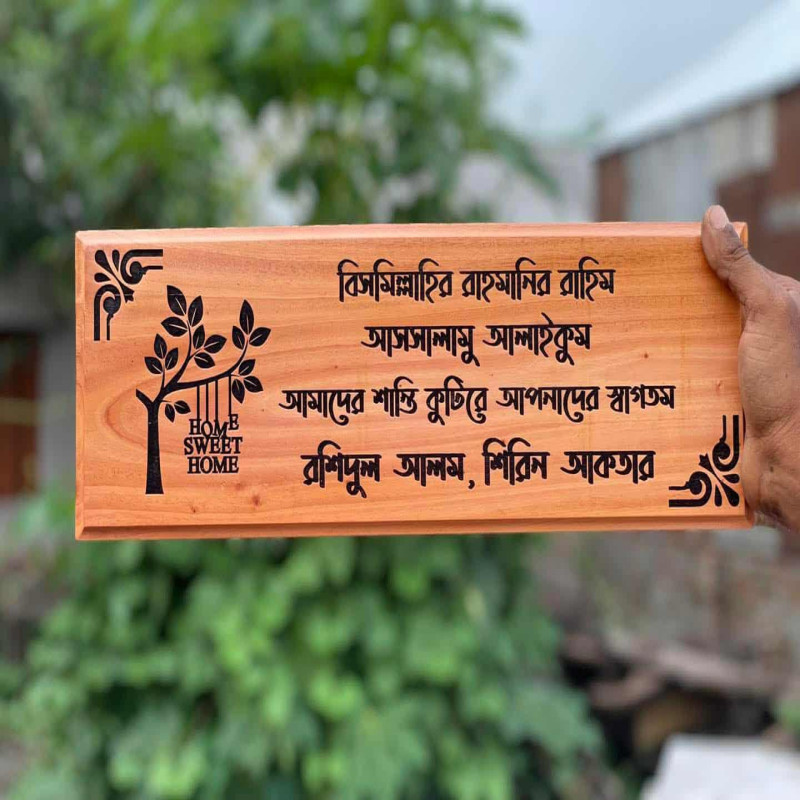 বিসমিল্লাহির রাহমানির রাহিম
আসসালামু আলাইকুম
আমাদের শান্তি কুটিরে আপনাদের স্বাগতম
রশিদুল আলম, শিরিন আকতার
HOME
SWEET
HOME